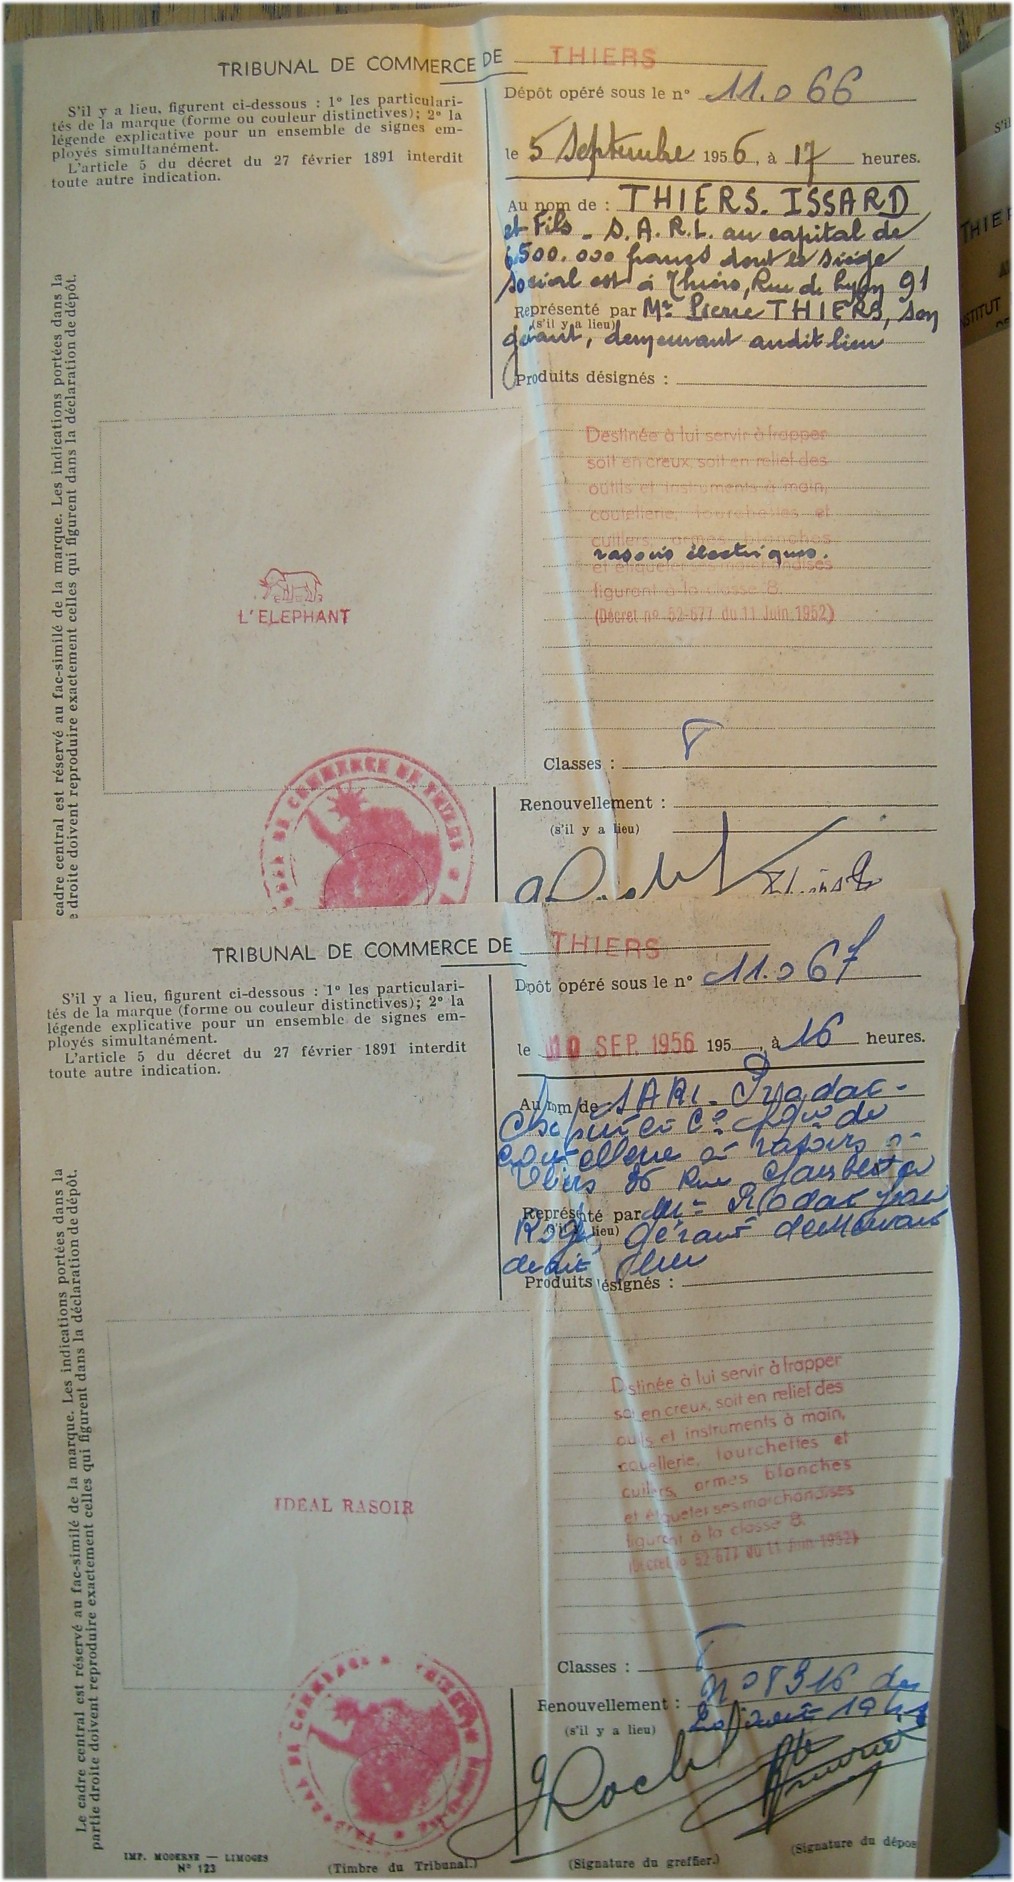 TRIBUNAL DE COMMERCE DE THIERS
S'il y a lieu, figurent ci-dessous : 1º les particulari-
tés de la marque (forme ou couleur distinctives); 2º la
légende explicative pour un ensemble de signes em-
ployés simultanément.
L'article 5 du décret du 27 février 1891 interdit
toute autre indication.
Dépôt opéré sous le nº 11.066
le 5 Septembre 1956, à 17 heures.
Au nom de : THIERS. ISSARD
et Fils - S.A.R.L. au capital de
6500.000 francs dont le siège
social est à Thiers, Rue de Lyon 91
Représenté par Mr Pierre THIERS, son
(s'il y a lieu)
gérant, demeurant audit lieu
Produits désignés :
cadre central est réservé au fac-similé de la marque. Les indications portées dans la
e droite doivent reproduire exactement celles qui figurent dans la déclaration de dépôt.
L'ELEPHANT
Destinée à lui servir à frapper
soit en creux, soit en relief des
outils et instruments à main,
coutellerie, fourchettes et
cuillers, armes blanches
rasoirs électriques.
et étiqueter ses marchandises
figurant à la classe 8.
(Décret nº 52-677 du 11 Juin 1952)
Classes : 8
Renouvellement :
(s'il y a lieu)
DE COMMERCE DE THIERS
S'il
THIER
INSTITUT
TRIBUNAL DE COMMERCE DE THIERS
S'il y a lieu, figurent ci-dessous : 1º les particulari-
tés de la marque (forme ou couleur distinctives); 2º la
légende explicative pour un ensemble de signes em-
ployés simultanément.
L'article 5 du décret du 27 février 1891 interdit
toute autre indication.
Dpôt opéré sous le nº 11.067
le 10 SEP. 1956 195 , à 16 heures.
Au nom de SARL. Pradat-
et Cº
coutellerie et rasoirs à
Thiers 36 Rue Gambetta
Représenté par Mr Pradat Jean
(s'il y a lieu)
Roger, gérant demeurant
dudit lieu
Produits désignés :
Le cadre central est réservé au fac-similé de la marque. Les indications portées dans la
partie droite doivent reproduire exactement celles qui figurent dans la déclaration de dépôt.
IDEAL RASOIR
Destinée à lui servir à frapper
soit en creux, soit en relief des
outils et instruments à main,
coutellerie, fourchettes et
cuillers, armes blanches
et étiqueter ses marchandises
figurant à la classe 8.
(Décret nº 52-677 du 11 Juin 1952)
Classes : 8
Renouvellement : Nº 8316 du
(s'il y a lieu)
IMP. MODERNE — LIMOGES
Nº 123
(Timbre du Tribunal.)
(Signature du greffier.)
(Signature du dépos